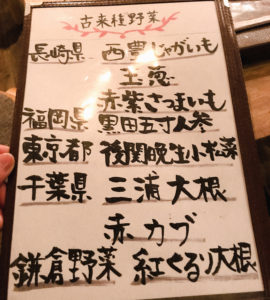 古来種野菜
長崎県 西豊じゃがいも
玉葱
赤紫さつまいも
福岡県 黒田五寸人参
東京都 後関晩生小松菜
千葉県 三浦大根
赤カブ
鎌倉野菜 紅くるり大根